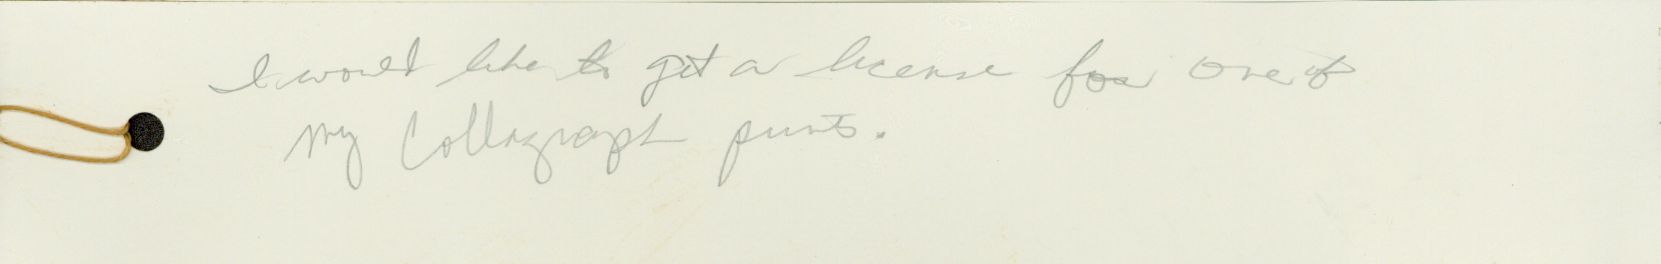 I would like to get a license for one of
my Collagraph prints.